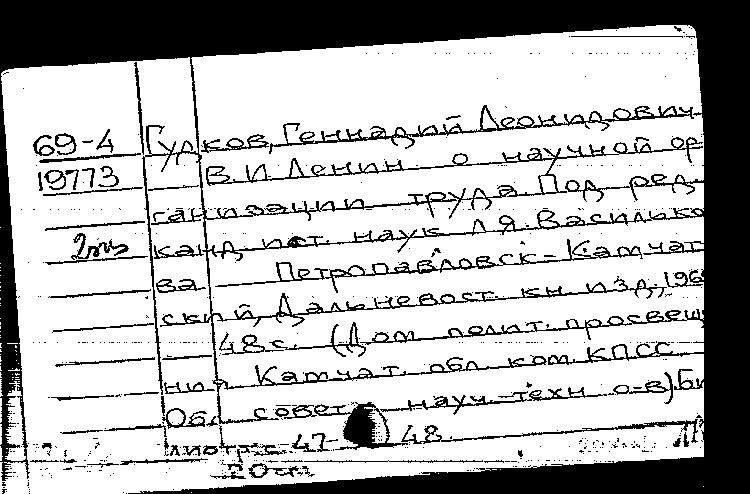 69-4 Гудков, Геннадий Леонидович
19773 В. И. Ленин о научной ор
ганизации труда. Под ред.
канд. ист. наук Л. Я. Василько
ва Петропавловск-Камчат
ский, Дальневост. кн. изд., 196
48 с. (Дом полит. просвещ
ния Камчат. обл. ком. КПСС
Обл. совет науч.-техн. о-в) Би
лиогр.: с. 47-48.
20 cm